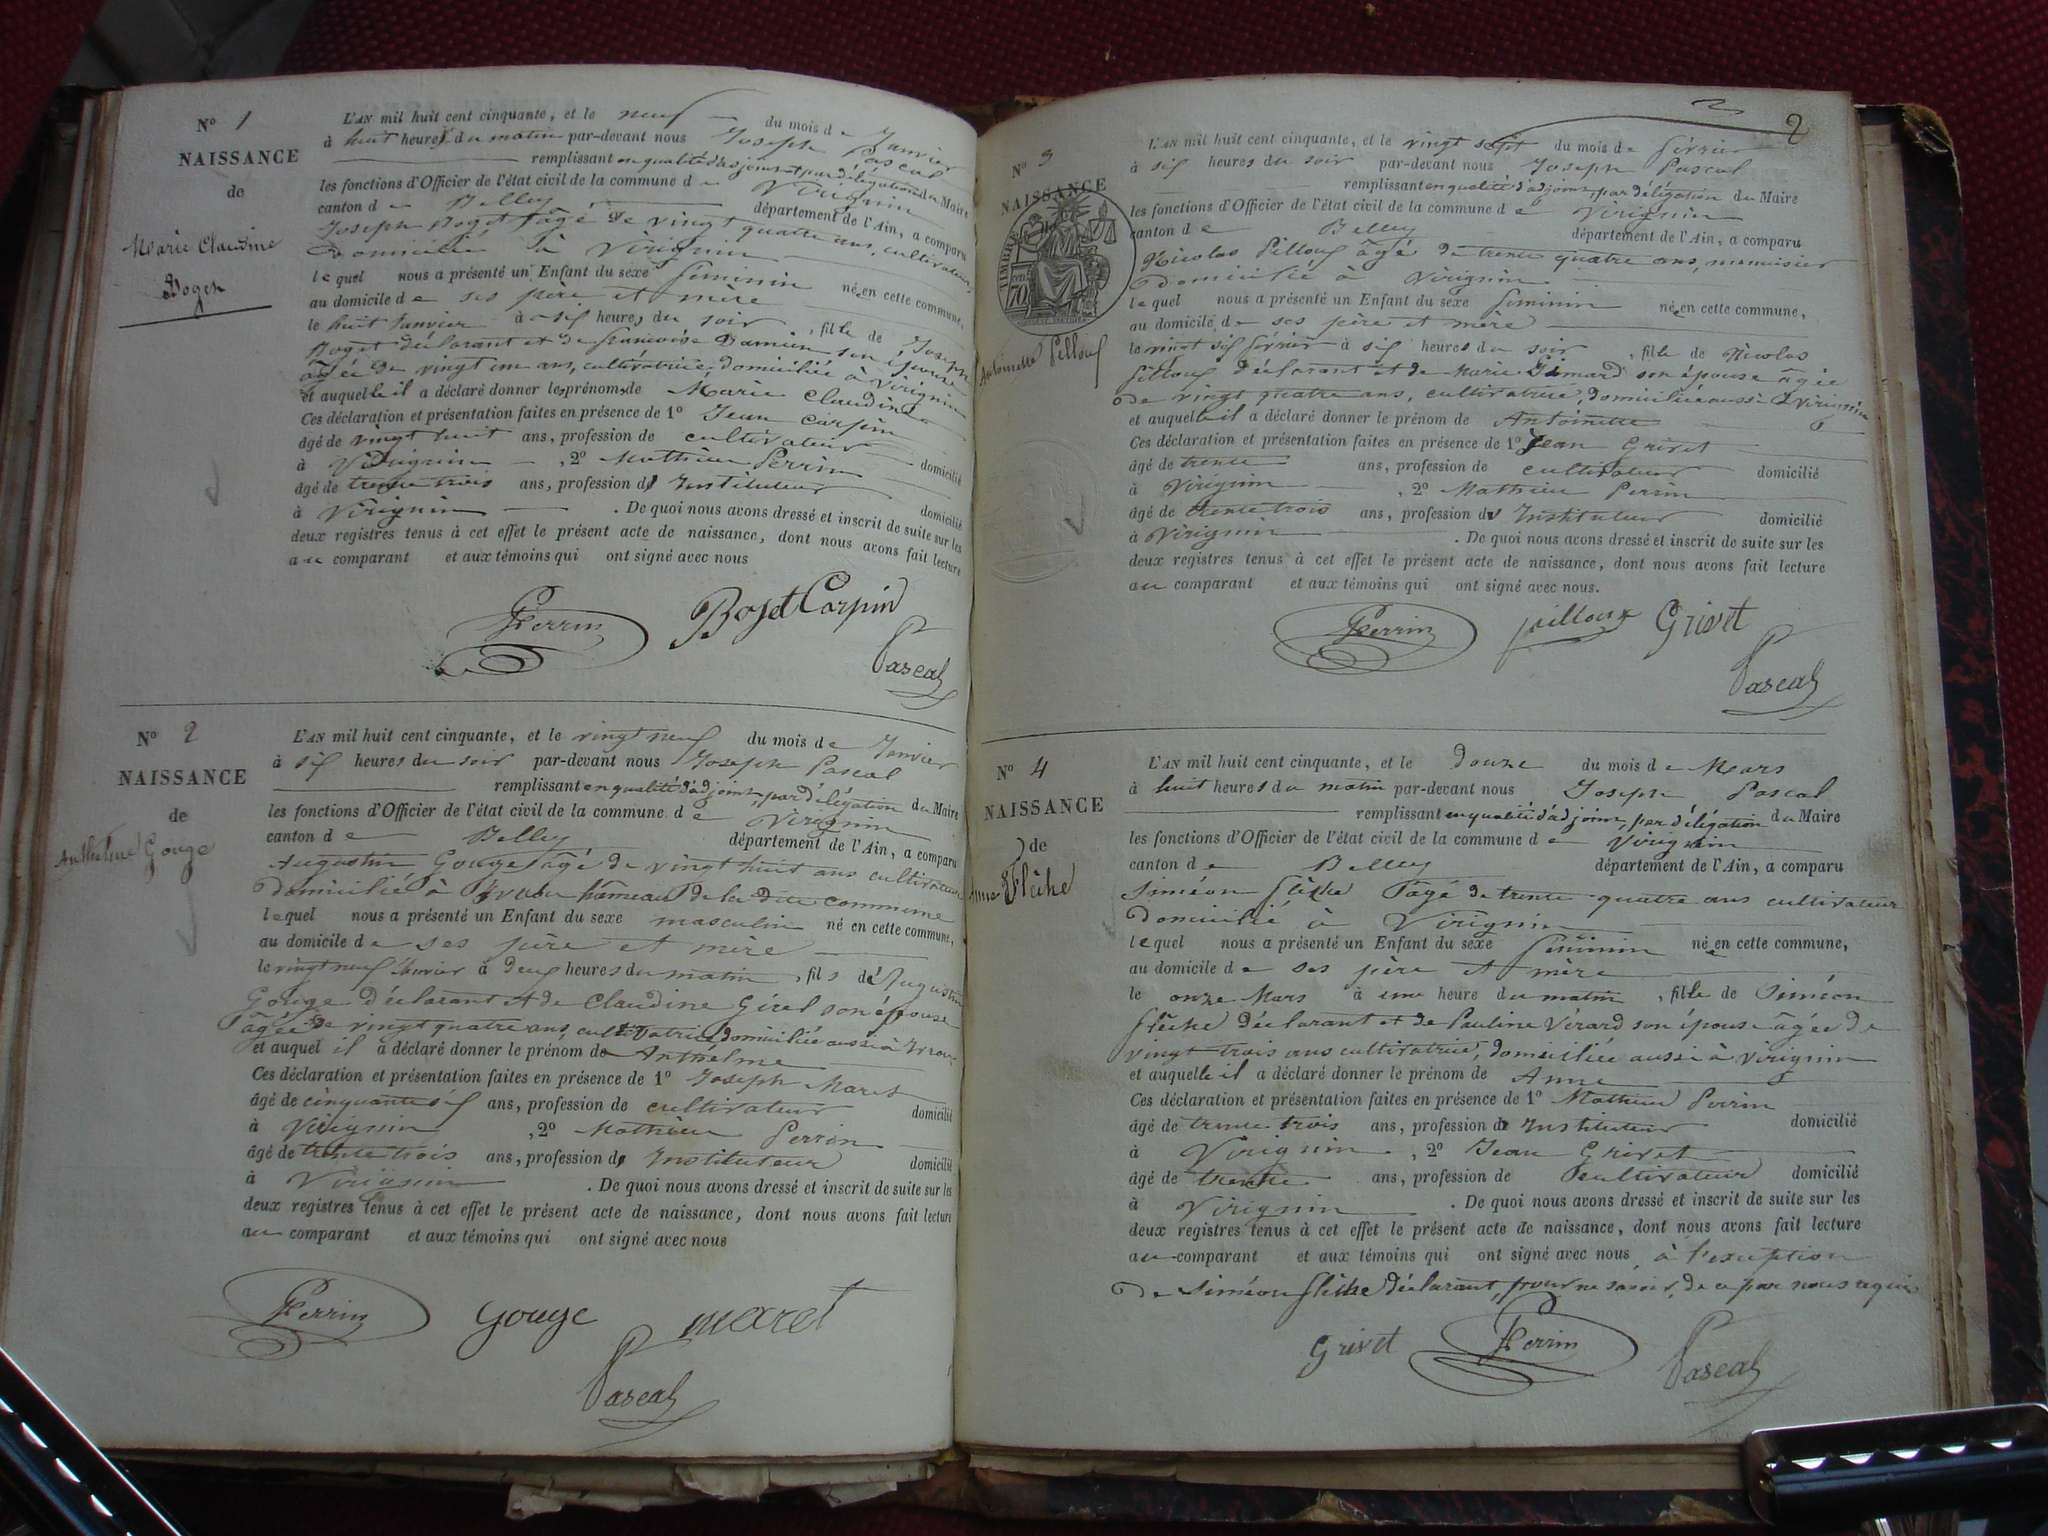 N° 1
NAISSANCE
de
Marie Claudine
Boget
L'AN mil huit cent cinquante, et le neuf du mois de Janvier
à huit heures du matin par-devant nous Joseph Pascal
remplissant en qualité d'adjoint, par délégation du Maire
les fonctions d'Officier de l'état civil de la commune de Virignin
canton de Belley département de l'Ain, a comparu
Joseph Boget âgé de vingt quatre ans, cultivateur,
domicilié à Virignin
lequel nous a présenté un Enfant du sexe féminin née en cette commune,
au domicile de ses père et mère
le huit Janvier à six heures du soir, fille de Joseph
Boget déclarant et de Françoise Damien son épouse
âgée de vingt un ans, cultivatrice, domiciliée à Virignin
et auquelle il a déclaré donner les prénoms de Marie Claudine
Ces déclaration et présentation faites en présence de 1° Jean Carpin
âgé de vingt huit ans, profession de cultivateur domicilié
à Virignin, 2° Mathieu Perrin
âgé de trente trois ans, profession d' Instituteur domicilié
à Virignin. De quoi nous avons dressé et inscrit de suite sur les
deux registres tenus à cet effet le présent acte de naissance, dont nous avons fait lecture
au comparant et aux témoins qui ont signé avec nous
Perrin Boget Carpin
Pascal
N° 2
NAISSANCE
de
Anthelme Gouge
L'AN mil huit cent cinquante, et le vingt neuf du mois de Janvier
à six heures du soir par-devant nous Joseph Pascal
remplissant en qualité d'adjoint, par délégation du Maire
les fonctions d'Officier de l'état civil de la commune de Virignin
canton de Belley département de l'Ain, a comparu
Augustin Gouge âgé de vingt huit ans cultivateur
domicilié à hameau de la dite commune
lequel nous a présenté un Enfant du sexe masculin né en cette commune,
au domicile de ses père et mère
le vingt neuf Janvier à deux heures du matin, fils de Augustin
Gouge déclarant et de Claudine Girel son épouse
âgée de vingt quatre ans, cultivatrice domiciliée aussi à
et auquel il a déclaré donner le prénom de Anthelme
Ces déclaration et présentation faites en présence de 1° Joseph Maret
âgé de cinquante six ans, profession de cultivateur domicilié
à Virignin, 2° Mathieu Perrin
âgé de trente trois ans, profession d' Instituteur domicilié
à Virignin. De quoi nous avons dressé et inscrit de suite sur les
deux registres tenus à cet effet le présent acte de naissance, dont nous avons fait lecture
au comparant et aux témoins qui ont signé avec nous
Perrin Gouge maret
Pascal
2
N° 3
NAISSANCE
TIMBRE
70
Antoinette Pilloux
L'AN mil huit cent cinquante, et le vingt sept du mois de février
à six heures du soir par-devant nous Joseph Pascal
remplissant en qualité d'adjoint, par délégation du Maire
les fonctions d'Officier de l'état civil de la commune de Virignin
canton de Belley département de l'Ain, a comparu
Nicolas Pilloux âgé de trente quatre ans, menuisier
domicilié à Virignin
lequel nous a présenté un Enfant du sexe féminin née en cette commune,
au domicile de ses père et mère
le vingt six février à six heures du soir, fille de Nicolas
Pilloux déclarant et de Marie son épouse âgée
de vingt quatre ans, cultivatrice, domiciliée aussi à Virignin
et auquelle il a déclaré donner le prénom de Antoinette
Ces déclaration et présentation faites en présence de 1° Jean Grivet
âgé de trente ans, profession de cultivateur domicilié
à Virignin, 2° Mathieu Perrin
âgé de trente trois ans, profession d' Instituteur domicilié
à Virignin. De quoi nous avons dressé et inscrit de suite sur les
deux registres tenus à cet effet le présent acte de naissance, dont nous avons fait lecture
au comparant et aux témoins qui ont signé avec nous.
Perrin pilloux Grivet
Pascal
N° 4
NAISSANCE
de
Anne Flèche
L'AN mil huit cent cinquante, et le douze du mois de Mars
à huit heures du matin par-devant nous Joseph Pascal
remplissant en qualité d'adjoint, par délégation du Maire
les fonctions d'Officier de l'état civil de la commune de Virignin
canton de Belley département de l'Ain, a comparu
Siméon flèche âgé de trente quatre ans cultivateur
domicilié à Virignin
lequel nous a présenté un Enfant du sexe féminin née en cette commune,
au domicile de ses père et mère
le onze Mars à une heure du matin, fille de Siméon
flèche déclarant et de Pauline Vérard son épouse âgée de
vingt trois ans cultivatrice, domiciliée aussi à Virignin
et auquelle il a déclaré donner le prénom de Anne
Ces déclaration et présentation faites en présence de 1° Mathieu Perrin
âgé de trente trois ans, profession d' Instituteur domicilié
à Virignin, 2° Jean Grivet
âgé de trente ans, profession de cultivateur domicilié
à Virignin. De quoi nous avons dressé et inscrit de suite sur les
deux registres tenus à cet effet le présent acte de naissance, dont nous avons fait lecture
au comparant et aux témoins qui ont signé avec nous à l'exception
de Siméon flèche déclarant, pour ne savoir, de ce par nous requis
Grivet Perrin Pascal